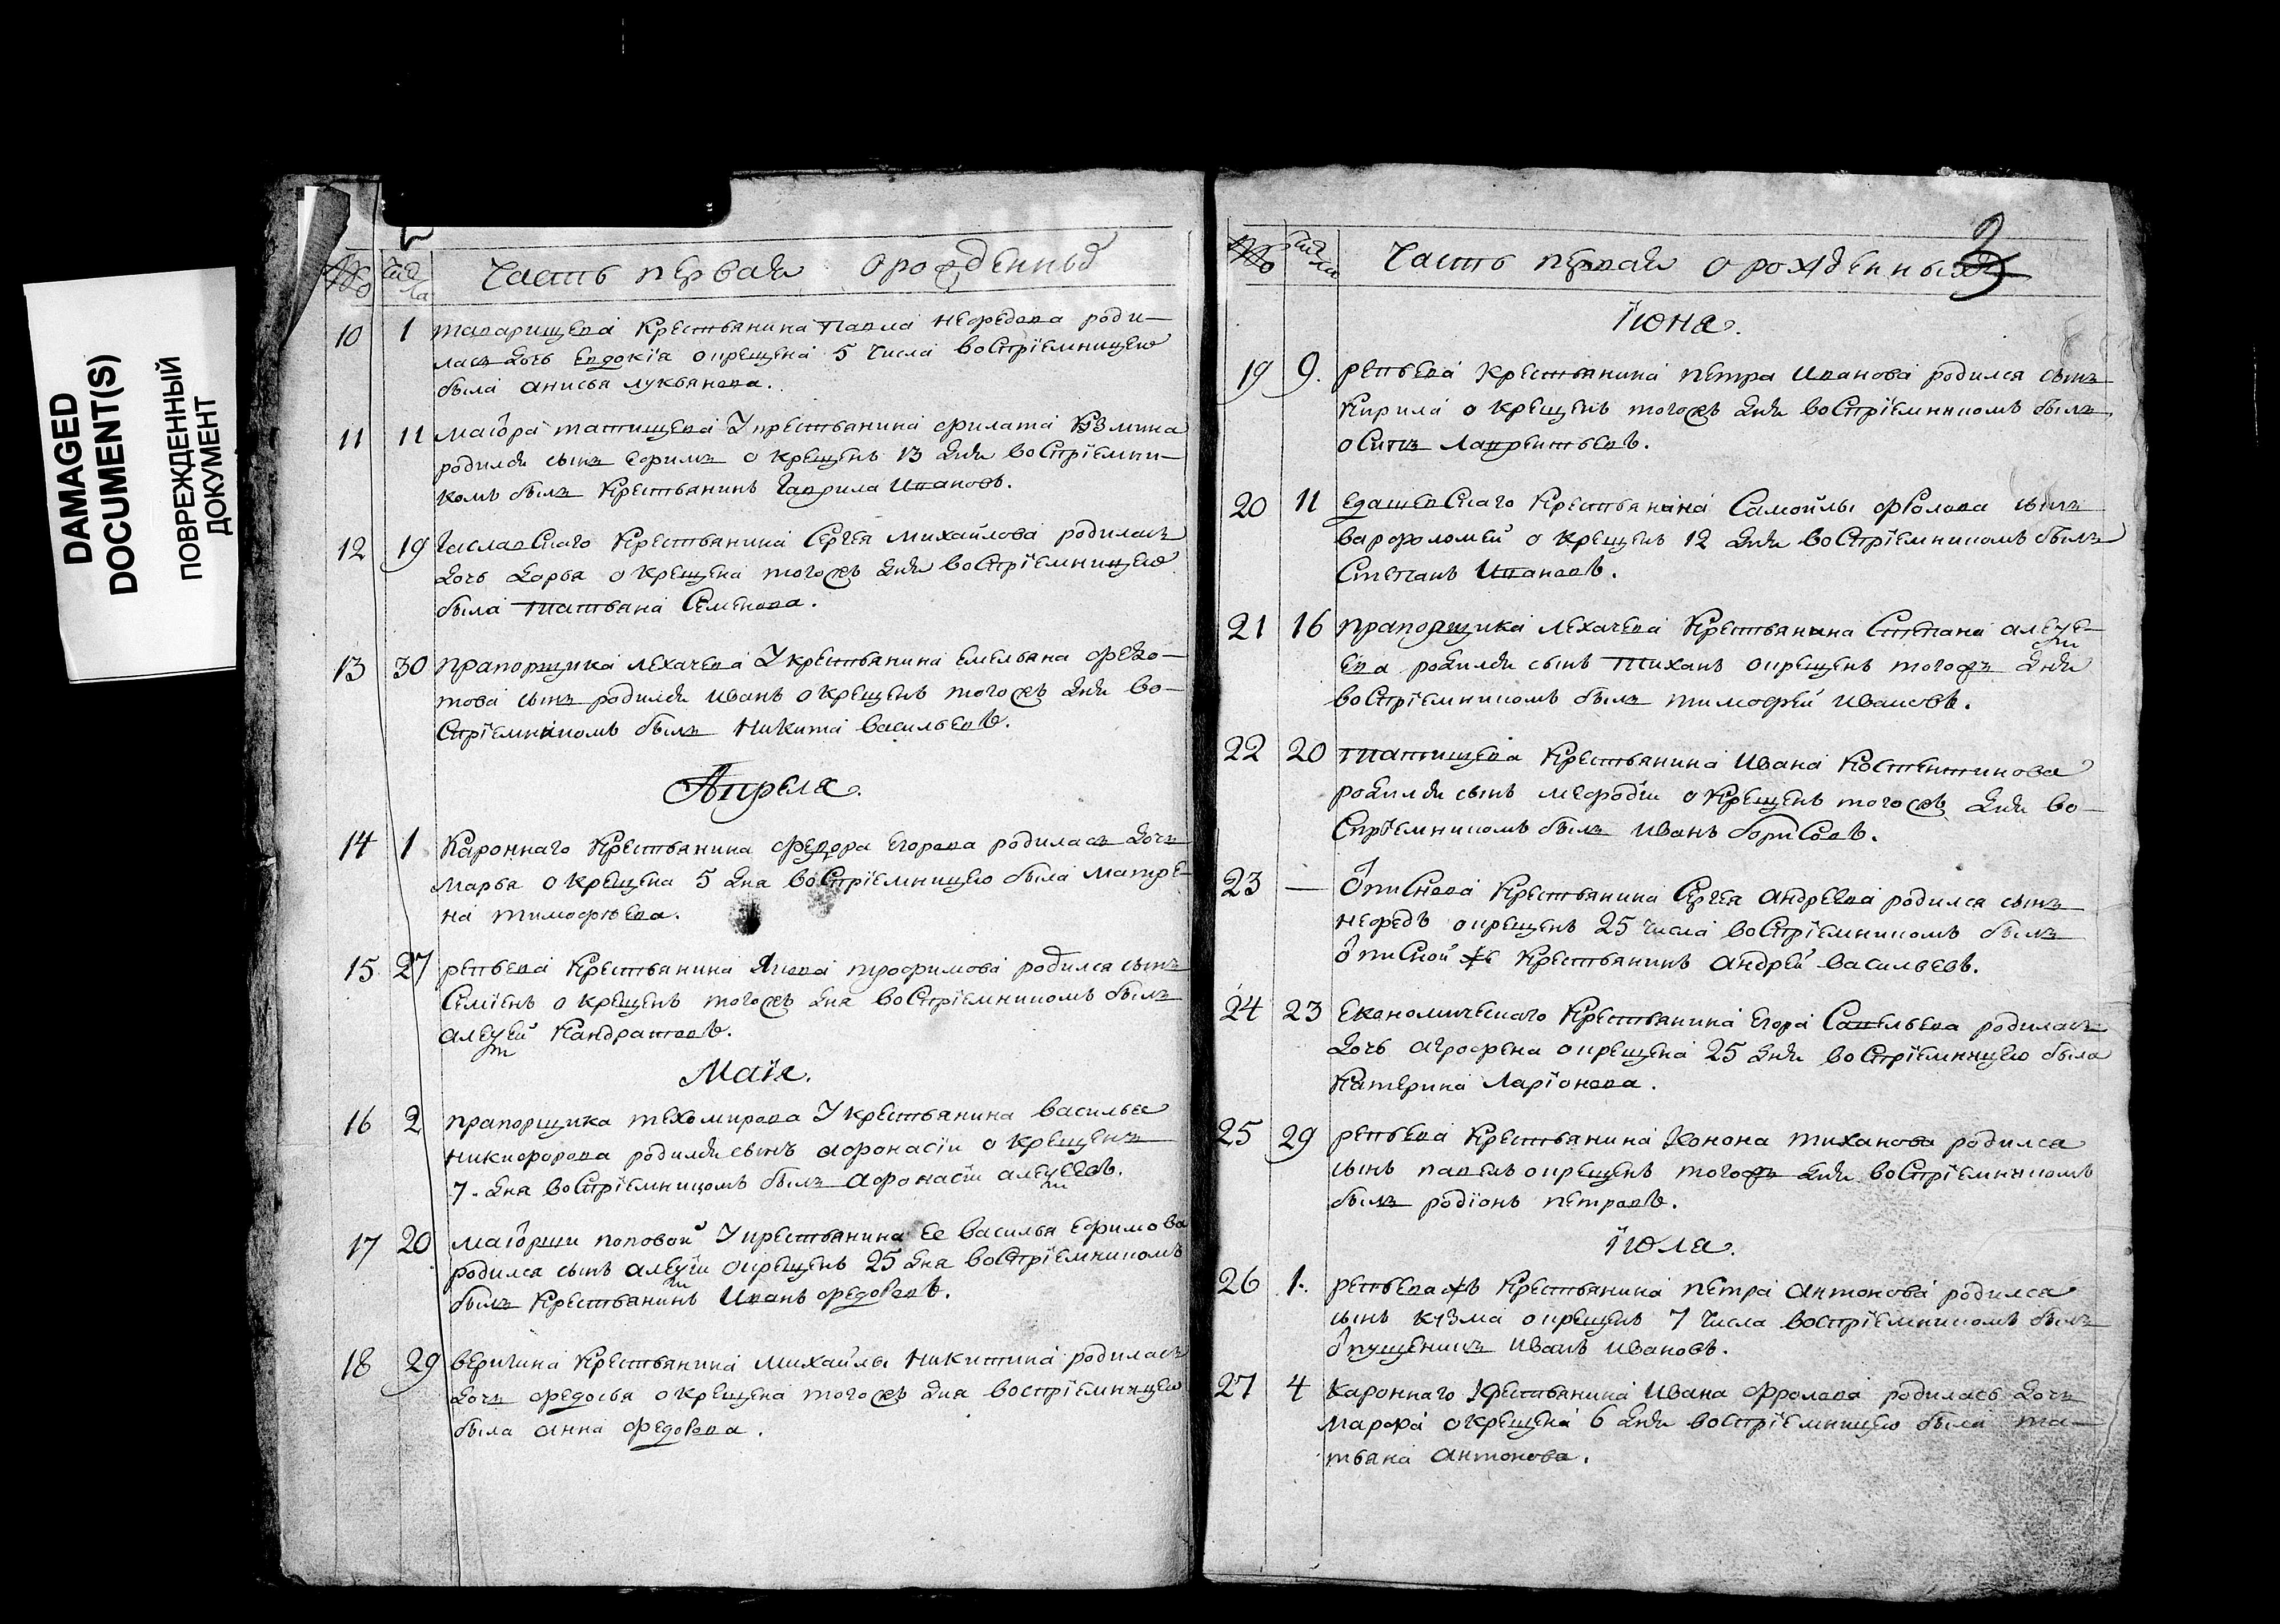 DAMAGED
DOCUMENT(S)
ПОВРЕЖДЕННЫЙ
ДОКУМЕНТ
№ чис
ла Часть первая о рожденныхъ
10 1 таварищева крестьянина Павла нефедова роди-
лась дочь Евдокïя окрещена 5 числа воспрïемницею
была анисья лукьянова.
11 11 маïора татищева У крестьянина филата козмина
родился сынъ ефимъ окрещенъ 13 дня воспрïемни-
комъ былъ крестьянинъ Гаврила Ивановъ.
12 19 крестьянина Сергея михайлова родилась
дочь дарья окрещена того жъ дня воспрïемницею
была татьяна Семенова.
13 30 прапорщика лехачева У крестьянина емельяна федо-
това сынъ родился иванъ окрещенъ того жъ дня во-
спрïемникомъ былъ никита васильевъ.
Апреля.
14 1 каронного крестьянина федора егорова родилась дочь
марья окрещена 5 дня воспрïемницею была матре-
на тимофѣева.
15 27 репьева крестьянина Якова трофимова родился сынъ
Семïенъ окрещенъ того жъ дня воспрïемникомъ былъ
алеѯей кандратовъ.
Маïя.
16 2 прапорщика техомирова У крестьянина василья
никифорова родился сынъ афонасïи окрещенъ
7. дня воспрïемницомъ былъ афонасïи алеѯеевъ.
17 20 маïорши поповой У крестьянина ее василья ефимова
родился сынъ алеѯïи окрещенъ 25 дня воспрïемникомъ
былъ крестьянинъ Иванъ федоровъ.
18 29 веригина крестьянина михайлы никитина родилась
дочь федосья окрещена того жъ дня воспрïемницею
была анна федорова.
№ чис
ла Часть первая о рожденныхъ 3
Ïюня.
19 9. репьева крестьянина петра иванова родился сынъ
кирила окрещенъ того жъ дня воспрïемникомъ былъ
осипъ лаврентьевъ.
20 11 крестьянина Самойлы фролова сынъ
варфоломей окрещенъ 12 дня воспрïемникомъ былъ
Степанъ Ивановъ.
21 16 прапорщика лехачева крестьянина Степана алеѯе-
ева родился сынъ тиханъ окрещенъ того жъ дня
воспрïемникомъ былъ тимофей ивановъ.
22 20 татищева крестьянина ивана костентинова
родился сынъ мефодïи окрещенъ того жъ дня во-
спрïемникомъ былъ иванъ борисовъ.
23 — Описнова крестьянина Сергея андреева родился сынъ
нефедъ окрещенъ 25 числа воспрïемникомъ былъ
описной же крестьянинъ андрей васильевъ.
24 23 економическаго крестьянина егора Савельева родилась
дочь агрофена окрещена 25 дня воспрïемницею была
катерина ларïонова.
25 29 репьева крестьянина конона тиханова родился
сынъ павелъ окрещенъ того жъ дня воспрïемникомъ
былъ родïонъ петровъ.
Ïюля.
26 1. репьева жъ крестьянина петра антонова родился
сынъ козма окрещенъ 7 числа воспрïемникомъ былъ
опущеникъ иванъ ивановъ.
27 4 каронного крестьянина ивана фролова родилась дочь
марфа окрещена 6 дня воспрïемницею была та-
тьяна антонова.